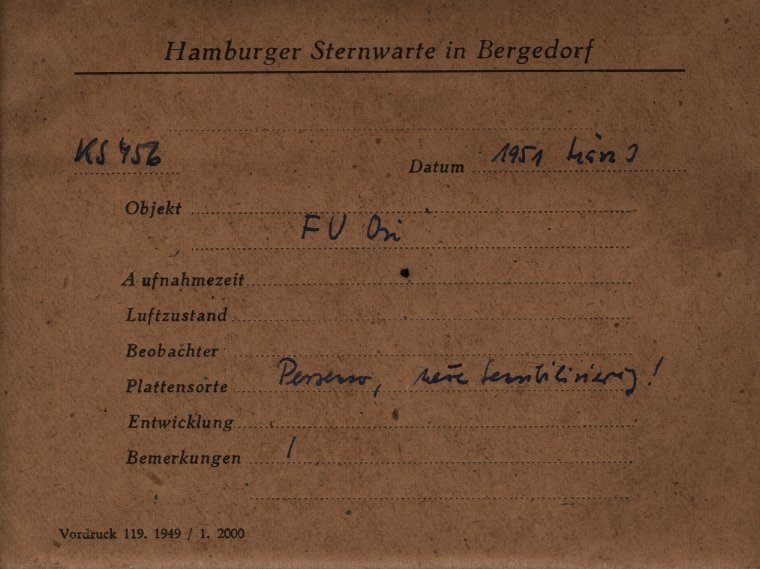 Hamburger Sternwarte in Bergedorf
KS 456
Datum 1951 März 3
Objekt
FU Ori
Aufnahmezeit
Luftzustand
Beobachter
Plattensorte Persenso, neue Sensibilisierung!
Entwicklung
Bemerkungen /
Vordruck 119. 1949 / 1. 2000